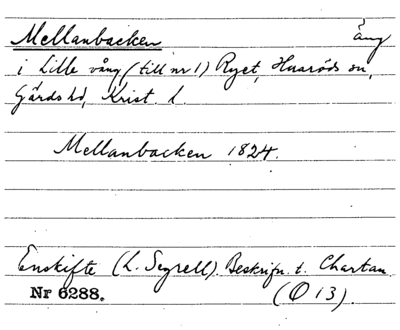 Mellanbacken äng
i Lille vång (till nr 1) Ryet, Huaröds sn,
Gärds hd, Krist. l.
Mellanbacken 1824.
Enskifte (L. Segrell). Beskrifn. t. Chartan
Nr 6288. (Ø 13).